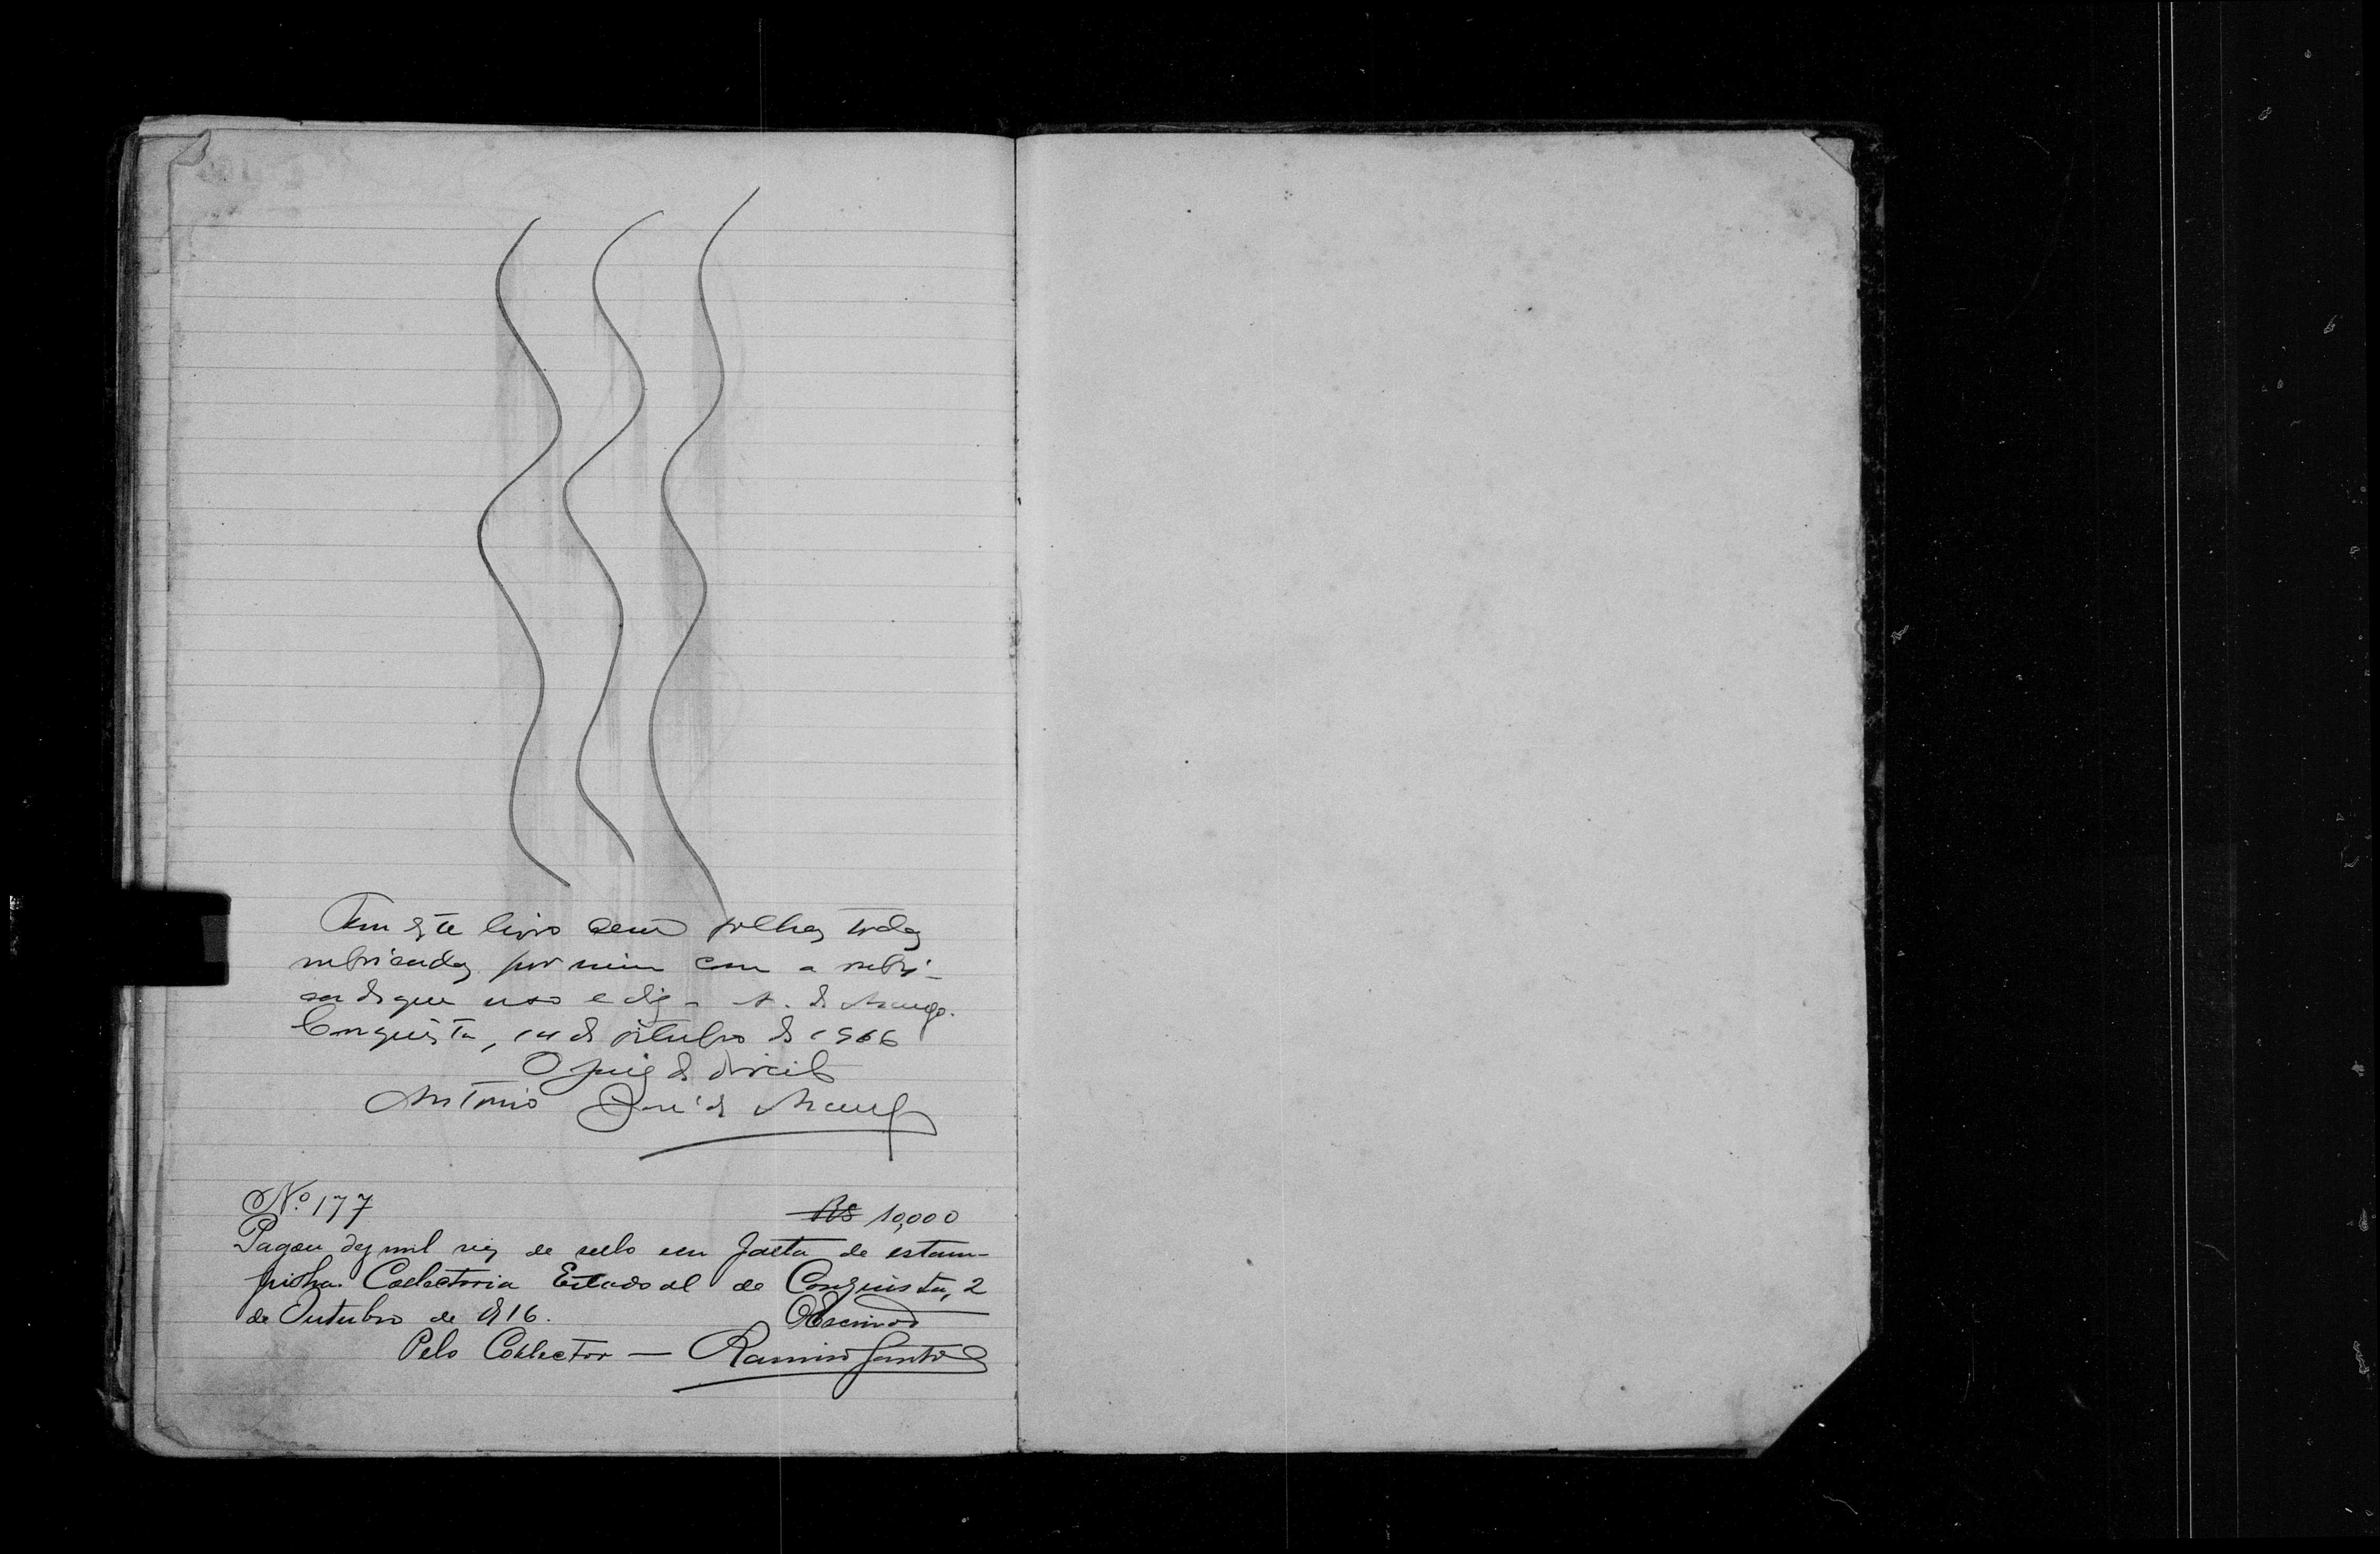 Tem este livro cem folhas todas
rubricadas por mim com a rubri-
ca de que uso e diz - A. de Araujo.
Conquista, 14 de outubro de 1916
O juiz de direito
Antonio José de Araujo
Nº 177 Rs 10,000
Pagou dez mil reis de sello em falta de estam-
pilha. Collectoria Estadoal de Conquista, 2
de Outubro de 1916. O Escrivão
Pelo Collector — Ramiro Santos